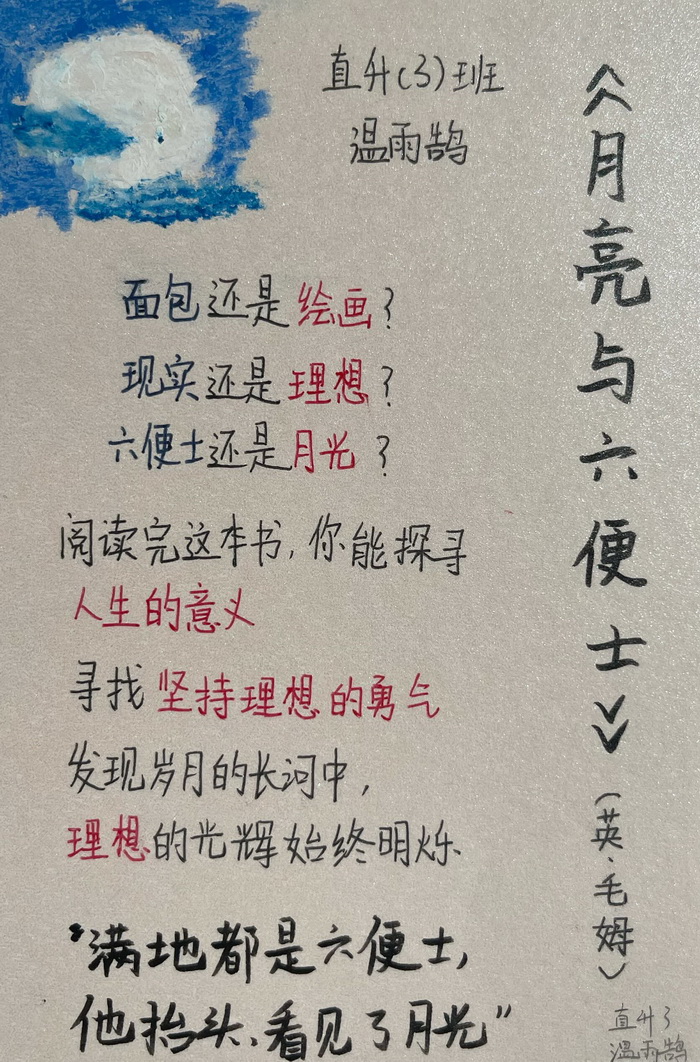 直升(3)班
温雨鹄
《月亮与六便士》(英·毛姆)
面包还是绘画?
现实还是理想?
六便士还是月光?
阅读完这本书,你能探寻
人生的意义
寻找坚持理想的勇气
发现岁月的长河中,
理想的光辉始终明烁.
“满地都是六便士,
他抬头、看见了月光”
直升3
温雨鹄